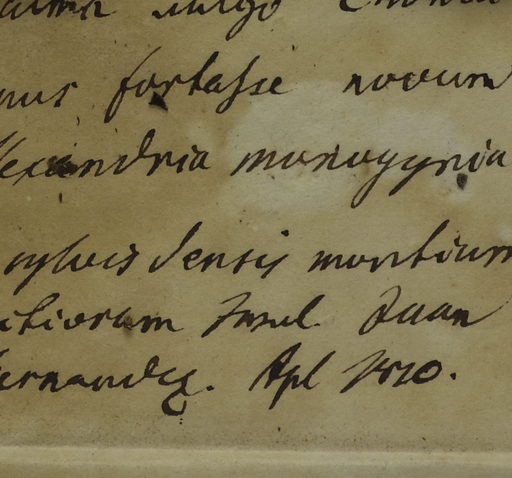 vulgo Chonta
nus fortasse novum
Hexandria monogynia
sylvis densis montium
ctiorum Insul. Juan
Fernandez. Apl 1830.